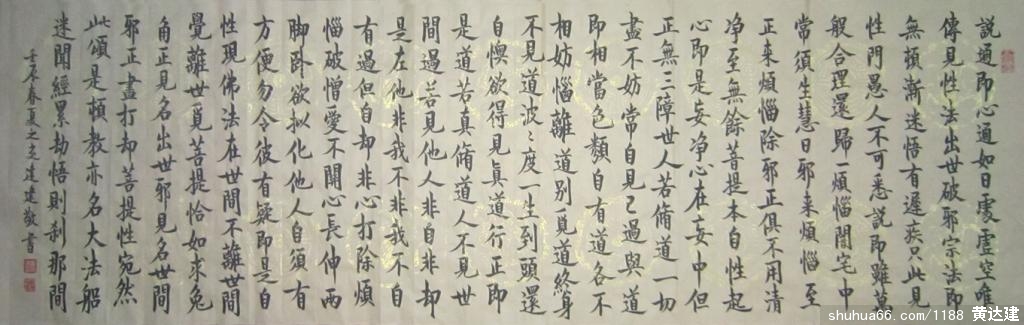 説通即心通如日處虛空唯
傳見性法出世破邪宗法即
無頓漸迷悟有遲疾只此見
性門愚人不可悉説即雖萬
般合理還歸一煩惱闇宅中
常須生慧日邪来煩惱至
正来煩惱除邪正俱不用清
净至無餘菩提本自性起
心即是妄净心在妄中但
正無三障世人若脩道一切
盡不妨常自見己過與道
即相當色類自有道各不
相妨惱離道别覓道終身
不見道波々度一生到頭還
自懊欲得見真道行正即
是道若真脩道人不見世
間過若見他人非自非却
是左他非我不非我不自
有過但自却非心打除煩
惱破憎愛不開心長伸兩
脚卧欲拟化他人自須有
方便勿令彼有疑即是自
性現佛法在世間不離世間
覺離世覓菩提恰如求兔
角正見名出世邪見名世間
邪正盡打却菩提性宛然
此頌是頓教亦名大法船
迷聞經累劫悟則刹那間
壬辰春夏之交達建敬書
shuhua66.com/1188 黄达建